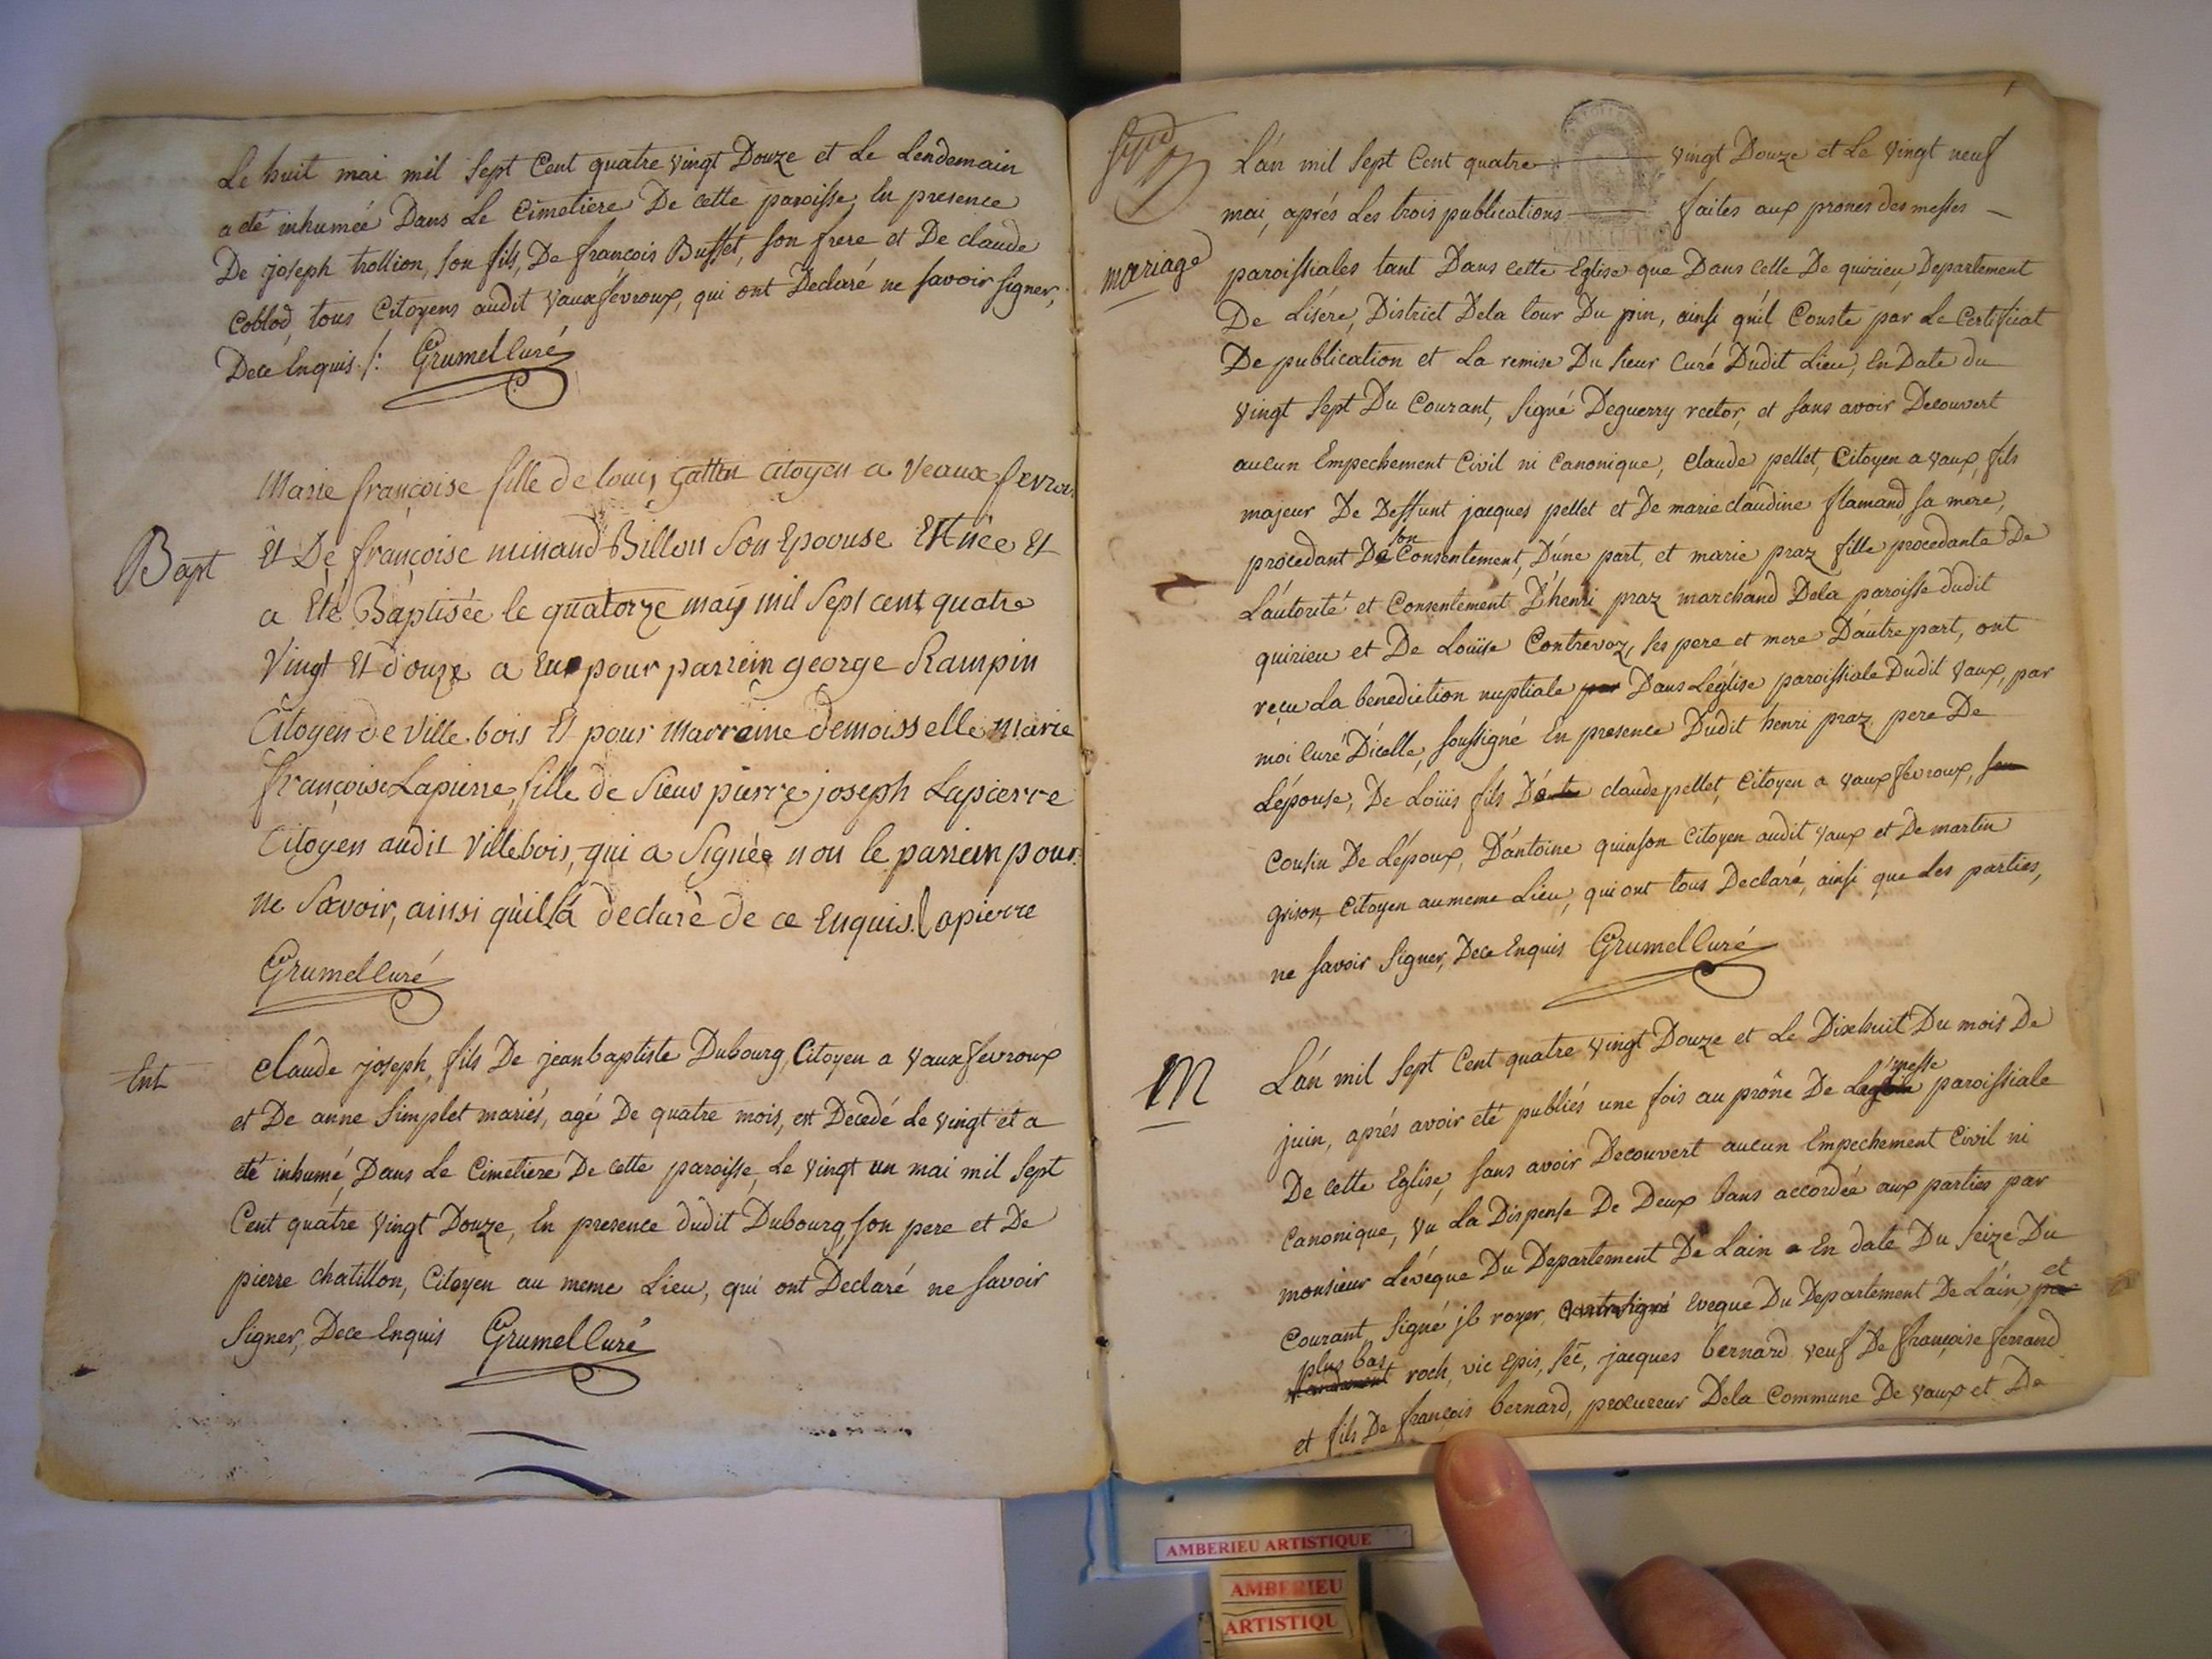 Le huit mai mil Sept Cent quatre vingt Douze et Le Lendemain
a eté inhumée Dans Le Cimetiere De cette paroisse, En presence
De joseph trollion, son fils, De francois Buffet, son frere et De claude
Coblod, tous Citoyens audit vauxfevroux, qui ont Declaré ne savoir signer,
Dece Enquis ./: Grumel Curé
Marie françoise fille de louis gattin citoyen a Veaux fevrou
Bapt
Et De françoise minand Billon Son Epoouse Est née Et
a Eté Baptisée le quatorze may mil Sept cent quatre
Vingt Et douze a Eu pour parrein george Rampin
Citoyen de Ville.bois Et pour Marraine demoisselle Marie
françoise Lapierre, fille de Sieur pierre joseph Lapierre
Citoyen audit Villebois, qui a Signée non le parrein pour
ne Savoir, ainsi quil la declarè de ce Enquis. Lapierre
Grumel Curé
Ent
Claude joseph, fils De jean baptiste Dubourg, Citoyen a vauxfevroux
et De anne Simplet mariés, agé De quatre mois, est Decedé Le vingt et a
eté inhumé, Dans Le Cimetiere De cette paroisse, Le vingt un mai mil Sept
Cent quatre vingt Douze, En presence dudit Dubourg, son pere et De
pierre chatillon, Citoyen au meme Lieu, qui ont Declaré ne savoir
Signer, Dece Enquis Grumel Curé
L'an mil Sept Cent quatre vingt Douze et Le vingt neuf
mai, aprés Les trois publications faites aux prones des messes
mariage
paroissiales tant Dans cette Eglise que Dans celle De quirieu, Departement
De Lisére, District Dela tour Du pin, ainsi qu'il Conste par Le Certificat
De publication et La remise Du sieur Curé Dudit Lieu, En Date du
vingt Sept Du Courant, Signé Deguerry rector, et sans avoir Decouvert
aucun Empechement Civil ni Canonique, Claude pellet, Citoyen a vaux, fils
majeur De Deffunt jacques pellet et De marie claudine flamand sa mere,
procedant De son Consentement, D'une part, et marie praz fille procedante De
L'autorité et Consentement D'henri praz marchand Dela paroisse dudit
quirieu et De Louïse Contrevoz, ses pere et mere D'autre part, ont
reçu La benediction nuptiale par Dans L'église paroissiale Dudit vaux, par
moi Curé D'icelle, soussigné En presence Dudit henri praz, pere De
L'épouse, De Loüis fils De claude pellet, Citoyen a vauxfevroux,
Cousin De L'époux, D'antoine quinson Citoyen audit vaux et De martin
grison, Citoyen au meme Lieu, qui ont tous Declaré, ainsi que Les parties,
ne savoir Signer, Dece Enquis Grumel Curé
M
L'an mil Sept Cent quatre vingt Douze et Le Dixhuit Du mois De
juin, aprés avoir eté publiés une fois au prône De La messe paroissiale
De cette Eglise, sans avoir Decouvert aucun Empechement Civil ni
Canonique, vu La Dispense De Deux bans accordée aux parties par
monsieur L'évéque Du Departement De Lain En date Du seize Du
Courant, Signé jb royer, Contresigné Eveque Du Departement De L'ain, et
plus bas roch, vic Epis, séc, jacques bernard veuf De françoise ferrand
et fils De françois bernard, procureur Dela Commune De vaux et De
AMBERIEU ARTISTIQUE
AMBERIEU
ARTISTIQU